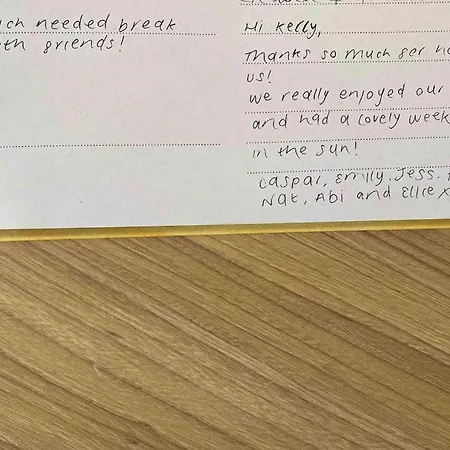 much needed break
with friends!
Hi Kelly,
Thanks so much for
us!
we really enjoyed our
and had a lovely week
in the sun!
Caspar, Emily, Jess.
Nat, Abi and Ellie x